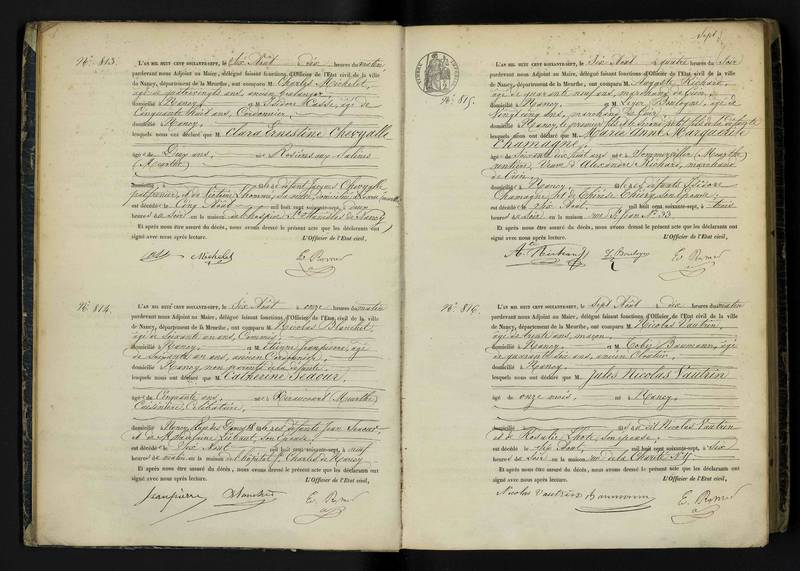 N° 813.
L'AN MIL HUIT CENT SOIXANTE-SEPT, le Six Août Dix heures du matin
pardevant nous Adjoint au Maire, délégué faisant fonctions d'Officier de l'État civil de la ville
de Nancy, département de la Meurthe, ont comparu M. Charles Michelot,
âgé de quatrevingts ans, ancien
domicilié Nancy, et M. Isidore Hasse, âgé de
Cinquante huit ans, Cordonnier,
domicilié Nancy,
lesquels nous ont déclaré que M Clara Ernestine Chevgalle
âgée de Deux ans, née Rosières aux Salines
(Meurthe)
domiciliée à fille de défunt Jacques Chevgalle
et de Victoire Thomas, sa veuve,
est décédée le Cinq Août mil huit cent soixante-sept, à deux
heures du Soir en la maison de hospice St Stanislas de Nancy
Et après nous être assuré du décès, nous avons dressé le présent acte que les déclarants ont
signé avec nous après lecture. L'Officier de l'État civil,
Michelot
N° 814.
L'AN MIL HUIT CENT SOIXANTE-SEPT, le Six Août onze heures du matin
pardevant nous Adjoint au Maire, délégué faisant fonctions d'Officier de l'État civil de la ville
de Nancy, département de la Meurthe, ont comparu M. Nicolas Blanchet,
âgé de Soixante un ans, Commis,
domicilié Nancy, et M. Etienne Jeanpierre, âgé
de Soixante un ans, ancien Cordonnier,
domicilié Nancy non parents de la défunte
lesquels nous ont déclaré que M Catherine Sedour,
âgée de Cinquante ans, née Réméréville (Meurthe)
Cuisinière Célibataire,
domiciliée Nancy, fille de défunts Jean Sedour
et de Madeleine son épouse,
est décédée le Six Août mil huit cent soixante-sept, à neuf
heures du matin en la maison de l'hôpital St Charles de Nancy
Et après nous être assuré du décès, nous avons dressé le présent acte que les déclarants ont
signé avec nous après lecture. L'Officier de l'État civil,
Jeanpierre
Sept
N° 815.
L'AN MIL HUIT CENT SOIXANTE-SEPT, le Six Août quatre heures du Soir
pardevant nous Adjoint au Maire, délégué faisant fonctions d'Officier de l'État civil de la ville
de Nancy, département de la Meurthe, ont comparu M. Auguste Richard,
âgé de quarante neuf ans, marchand de
domicilié Nancy, et M. Léger Boulogne, âgé de
Vingt cinq ans, marchand de Cuir,
domicilié Nancy, le premier fils et le second petit fils de la défunte
lesquels nous ont déclaré que M Marie Anne Marguerite
Chamagne,
âgée de Soixante dix huit ans née à Sommerviller (Meurthe)
rentière, Veuve d'Alexandre Richard, marchand
de
domiciliée Nancy, fille de défunts Isidore
Chamagne, et de Thérèse Thiéry, son épouse,
est décédée le Six Août, mil huit cent soixante-sept, à trois
heures du Soir en la maison rue St Jean N° 33
Et après nous être assuré du décès, nous avons dressé le présent acte que les déclarants ont
signé avec nous après lecture. L'Officier de l'État civil,
L. Boulogne
N° 816.
L'AN MIL HUIT CENT SOIXANTE-SEPT, le Sept Août Dix heures du matin
pardevant nous Adjoint au Maire, délégué faisant fonctions d'Officier de l'État civil de la ville
de Nancy, département de la Meurthe, ont comparu M. Nicolas Vautrin,
âgé de trente ans, maçon,
domicilié Nancy, et M. Baumann, âgé
de quarante dix ans, ancien Cloutier,
domicilié Nancy,
lesquels nous ont déclaré que M Jules Nicolas Vautrin
âgé de onze mois, né Nancy,
domicilié fils dudit Nicolas Vautrin
et de Rosalie son épouse,
est décédé le Six Août, mil huit cent soixante-sept, à Six
heures du Soir en la maison rue de la Charité N° 7
Et après nous être assuré du décès, nous avons dressé le présent acte que les déclarants ont
signé avec nous après lecture. L'Officier de l'État civil,
Nicolas Vautrin Baumann